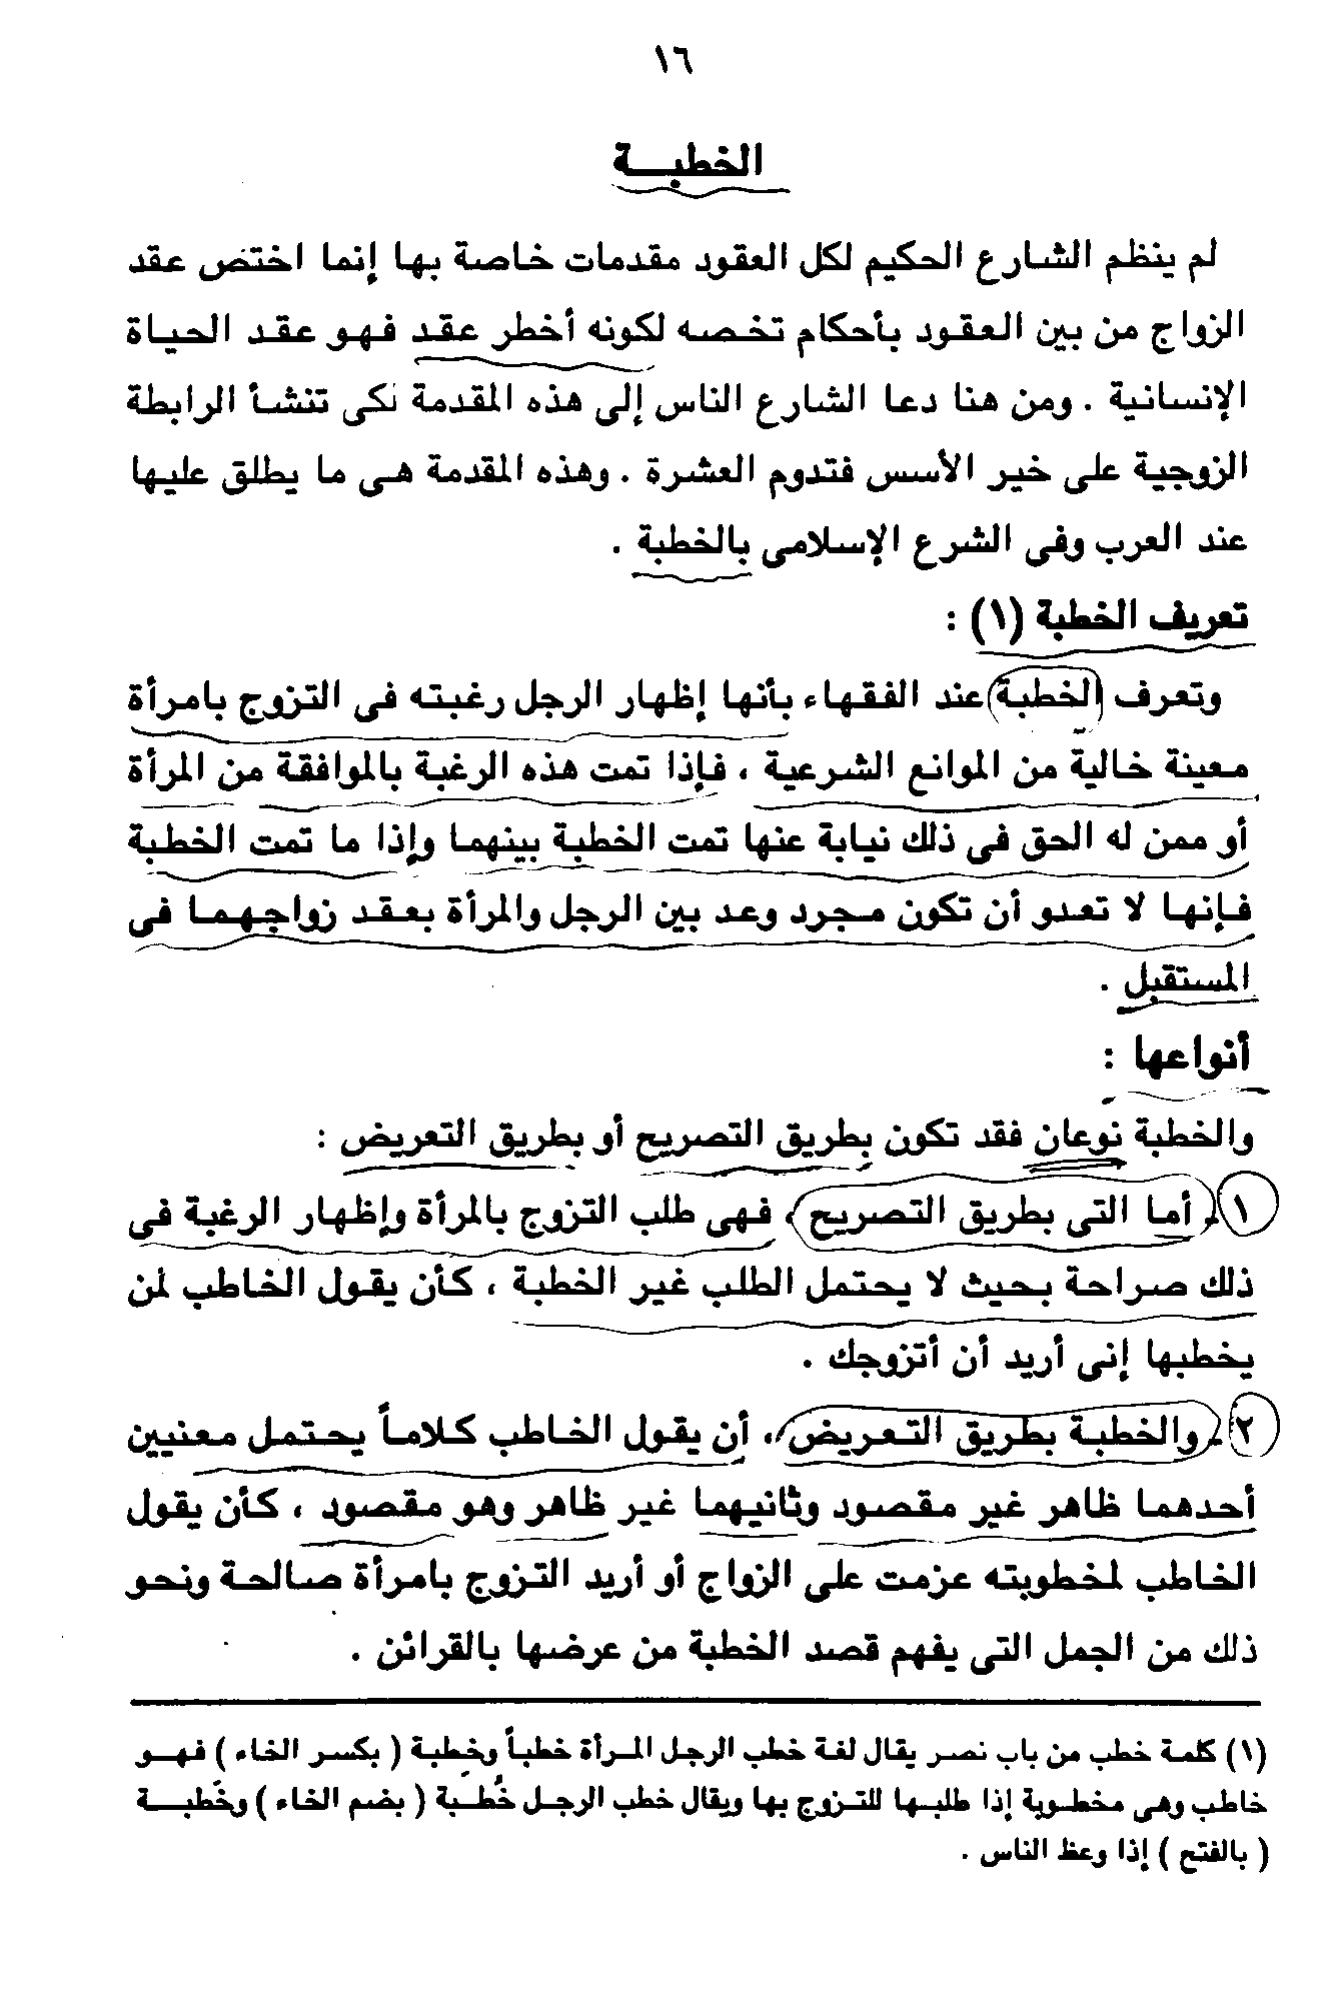 ١٦
الخطبــة
لم ينظم الشارع الحكيم لكل العقود مقدمات خاصة بها إنما اختص عقد
الزواج من بين العقود بأحكام تخصه لكونه أخطر عقد فهو عقد الحياة
الإنسانية . ومن هنا دعا الشارع الناس إلى هذه المقدمة لكى تنشأ الرابطة
الزوجية على خير الأسس فتدوم العشرة . وهذه المقدمة هى ما يطلق عليها
عند العرب وفى الشرع الإسلامى بالخطبة .
تعريف الخطبة (١) :
وتعرف الخطبة عند الفقهاء بأنها إظهار الرجل رغبته فى التزوج بامرأة
معينة خالية من الموانع الشرعية ، فإذا تمت هذه الرغبة بالموافقة من المرأة
أو ممن له الحق فى ذلك نيابة عنها تمت الخطبة بينهما وإذا ما تمت الخطبة
فإنها لا تعدو أن تكون مجرد وعد بين الرجل والمرأة بعقد زواجهما فى
المستقبل .
أنواعها :
والخطبة نوعان فقد تكون بطريق التصريح أو بطريق التعريض :
١ـ أما التى بطريق التصريح ، فهى طلب التزوج بالمرأة وإظهار الرغبة فى
ذلك صراحة بحيث لا يحتمل الطلب غير الخطبة ، كأن يقول الخاطب لمن
يخطبها إنى أريد أن أتزوجك .
٢ـ والخطبة بطريق التعريض ، أن يقول الخاطب كلاماً يحتمل معنيين
أحدهما ظاهر غير مقصود وثانيهما غير ظاهر وهو مقصود ، كأن يقول
الخاطب لمخطوبته عزمت على الزواج أو أريد التزوج بامرأة صالحة ونحو
ذلك من الجمل التى يفهم قصد الخطبة من عرضها بالقرائن .
(١) كلمة خطب من باب نصر يقال لغة خطب الرجل المرأة خطباً وخِطبة ( بكسر الخاء ) فهو
خاطب وهى مخطوبة إذا طلبها للتزوج بها ويقال خطب الرجل خُطبة ( بضم الخاء ) وخَطبــة
( بالفتح ) إذا وعظ الناس .